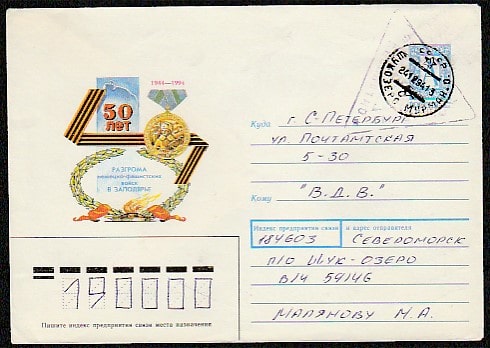 1944-1994
50
ЛЕТ
РАЗГРОМА
немецко-фашистских
войск
В ЗАПОЛЯРЬЕ
Куда г. С-Петербург
ул. Почтамтская
5-30
Кому "В.Д.В."
Индекс предприятия связи и адрес отправителя
184603 Североморск
п/о Щук-озеро
в/ч 59146
Малянову М.А.
190000
Пишите индекс предприятия связи места назначения